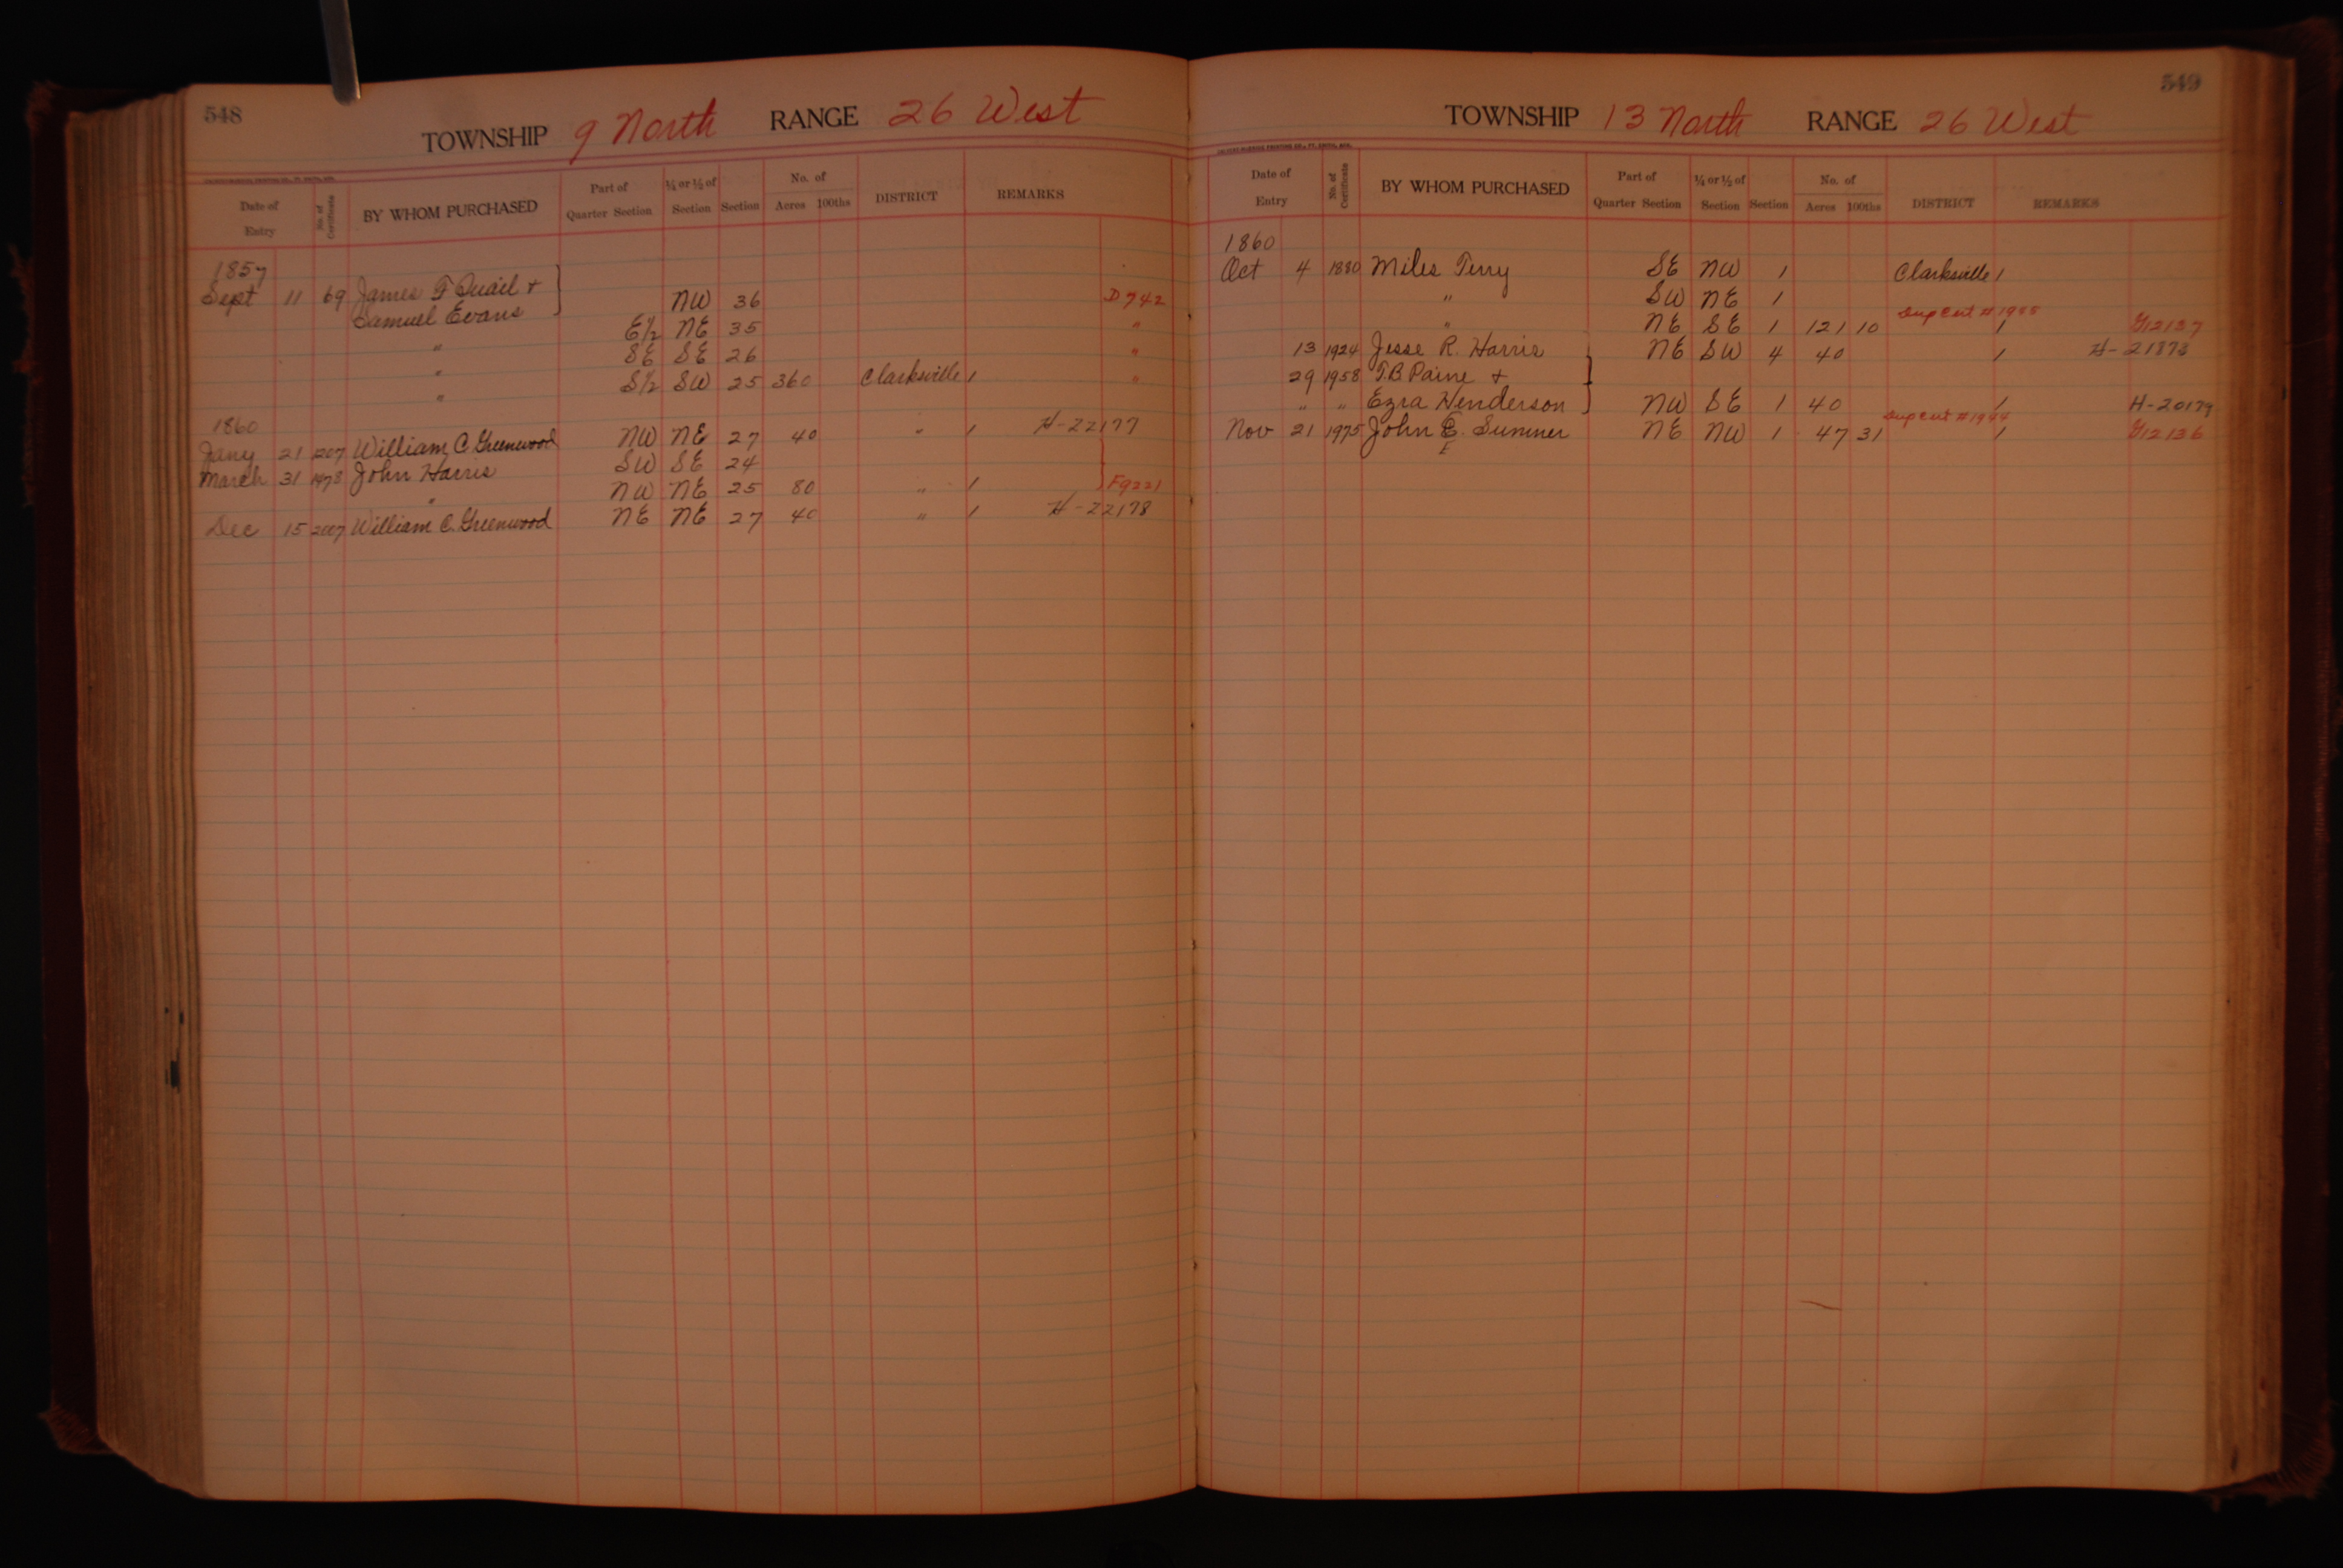 548
TOWNSHIP 9 North RANGE 26 West
Date of Entry No. of Certificate BY WHOM PURCHASED Part of Quarter Section ¼ or ½ of Section Section No. of Acres 100ths DISTRICT REMARKS
1857
Sept 11 69 James F Quail +
Samuel Evans NW 36 D742
" E½ NE 35 "
" SE SE 26 "
" S½ SW 25 360 Clarksville / "
1860
Jany 21 207 William C. Greenwood NW NE 27 40 " / H-22177
March 31 1478 John Harris SW SE 24
" NW NE 25 80 " / F9221
Dec 15 2007 William C. Greenwood NE NE 27 40 " / H-22178
549
TOWNSHIP 13 North RANGE 26 West
Date of Entry No. of Certificate BY WHOM PURCHASED Part of Quarter Section ¼ or ½ of Section Section No. of Acres 100ths DISTRICT REMARKS
1860
Oct 4 1880 Miles Terry SE NW 1 Clarksville /
" SW NE 1
Dup Cert #1955
" NE SE 1 121 10 / G12137
13 1924 Jesse R. Harris NE SW 4 40 / H-21873
29 1958 T.B. Paine +
" " Ezra Henderson NW SE 1 40 / H-20179
Dup Cert
Nov 21 1975 John E. Sumner NE NW 1 47 31 / G12136
E